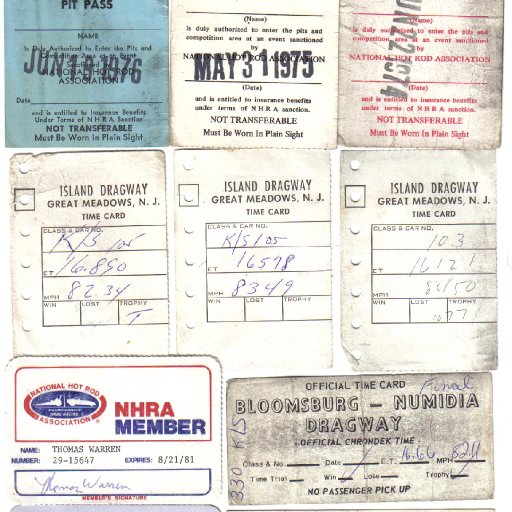 PIT PASS
NAME
Is Duly Authorized to Enter the Pits and
Competition Area at an Event
Sanctioned by
NATIONAL HOT ROD
ASSOCIATION
1976
Date
and is entitled to Insurance Benefits
Under Terms of NHRA Sanction.
NOT TRANSFERABLE
Must Be Worn In Plain Sight
(Name)
is duly authorized to enter the pits and
competition area at an event sanctioned by
NATIONAL HOT ROD ASSOCIATION
MAY 31 1975
(Date)
and is entitled to insurance benefits
under terms of N H R A sanction.
NOT TRANSFERABLE
Must Be Worn In Plain Sight
(Name)
is duly authorized to enter the pits and
competition area at an event sanctioned by
NATIONAL HOT ROD ASSOCIATION
1974
(Date)
and is entitled to insurance benefits
under terms of N H R A sanction.
NOT TRANSFERABLE
Must Be Worn In Plain Sight
ISLAND DRAGWAY
GREAT MEADOWS, N. J.
TIME CARD
CLASS & CAR NO.
K/S 105
ET 16.890
MPH 82.34
WIN LOST TROPHY
T
ISLAND DRAGWAY
GREAT MEADOWS, N. J.
TIME CARD
CLASS & CAR NO.
K/S 105
ET 16578
MPH 8349
WIN LOST TROPHY
ISLAND DRAGWAY
GREAT MEADOWS, N. J.
TIME CARD
CLASS & CAR NO.
103
ET
MPH
WIN LOST TROPHY
NATIONAL HOT ROD
CHAMPIONSHIP
DRAG RACING
ASSOCIATION
NHRA
MEMBER
NAME: THOMAS WARREN
NUMBER: 29-15647 EXPIRES: 8/21/81
Thomas Warren
MEMBER'S SIGNATURE
OFFICIAL TIME CARD Final
BLOOMSBURG — NUMIDIA
DRAGWAY
OFFICIAL CHRONDEK TIME:
330 K/S
Class & No. Date E.T. 16.66 MPH 82.11
Time Trial Win Lose Trophy
NO PASSENGER PICK UP